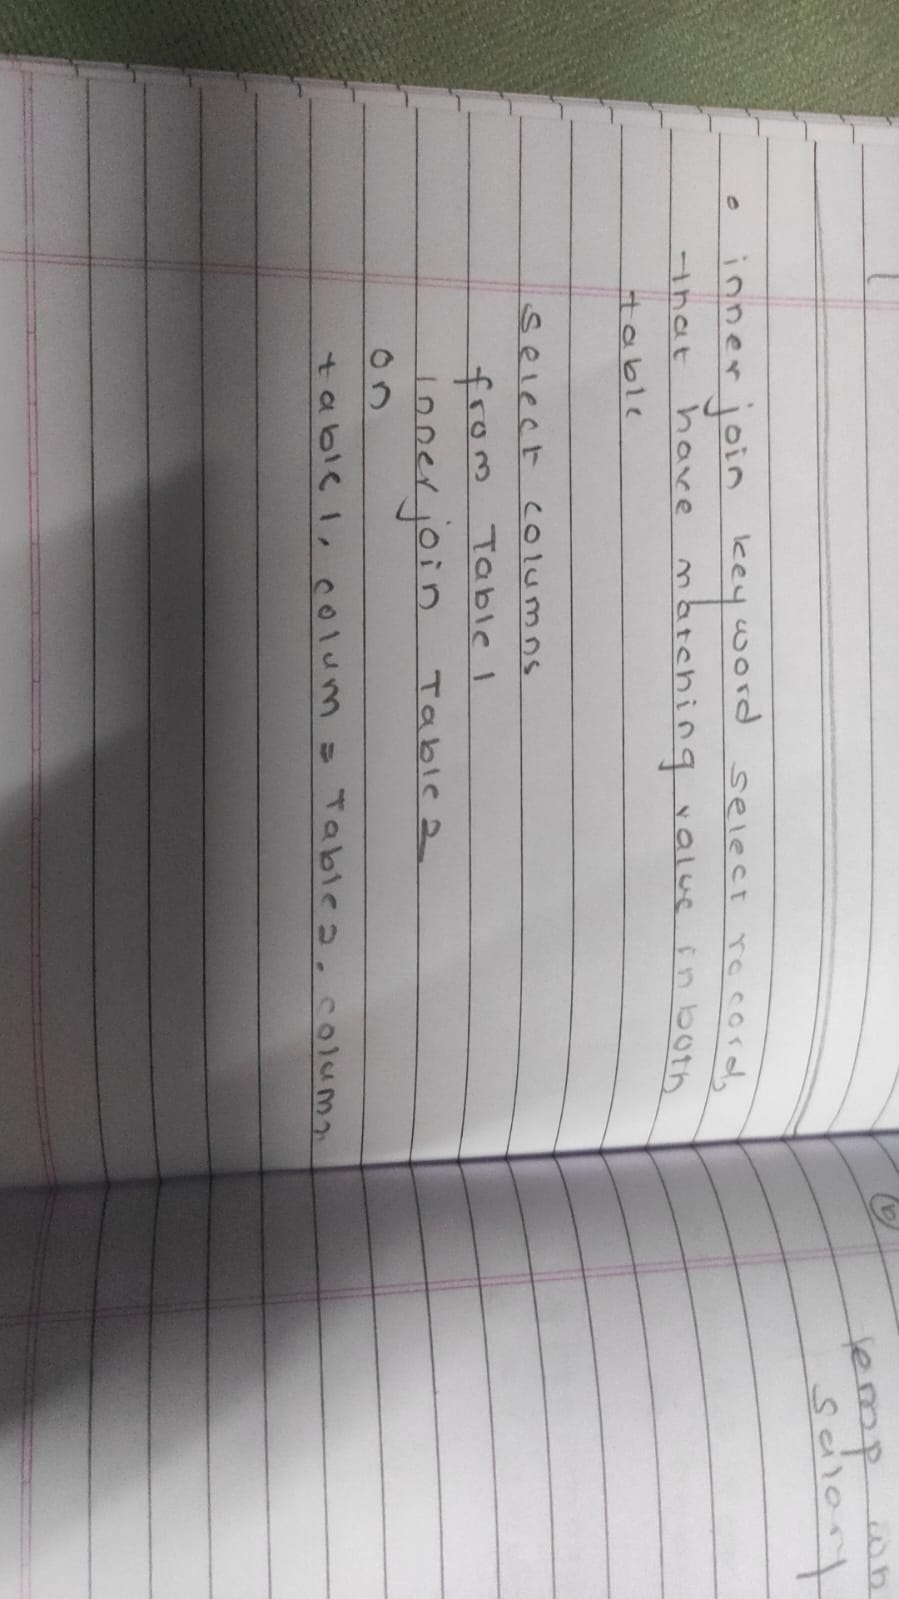 • inner join keyword select records
that have matching value in both
table
select columns
from Table 1
inner join Table 2
on
table 1. colum = Table 2. column
10
emp wh
salary